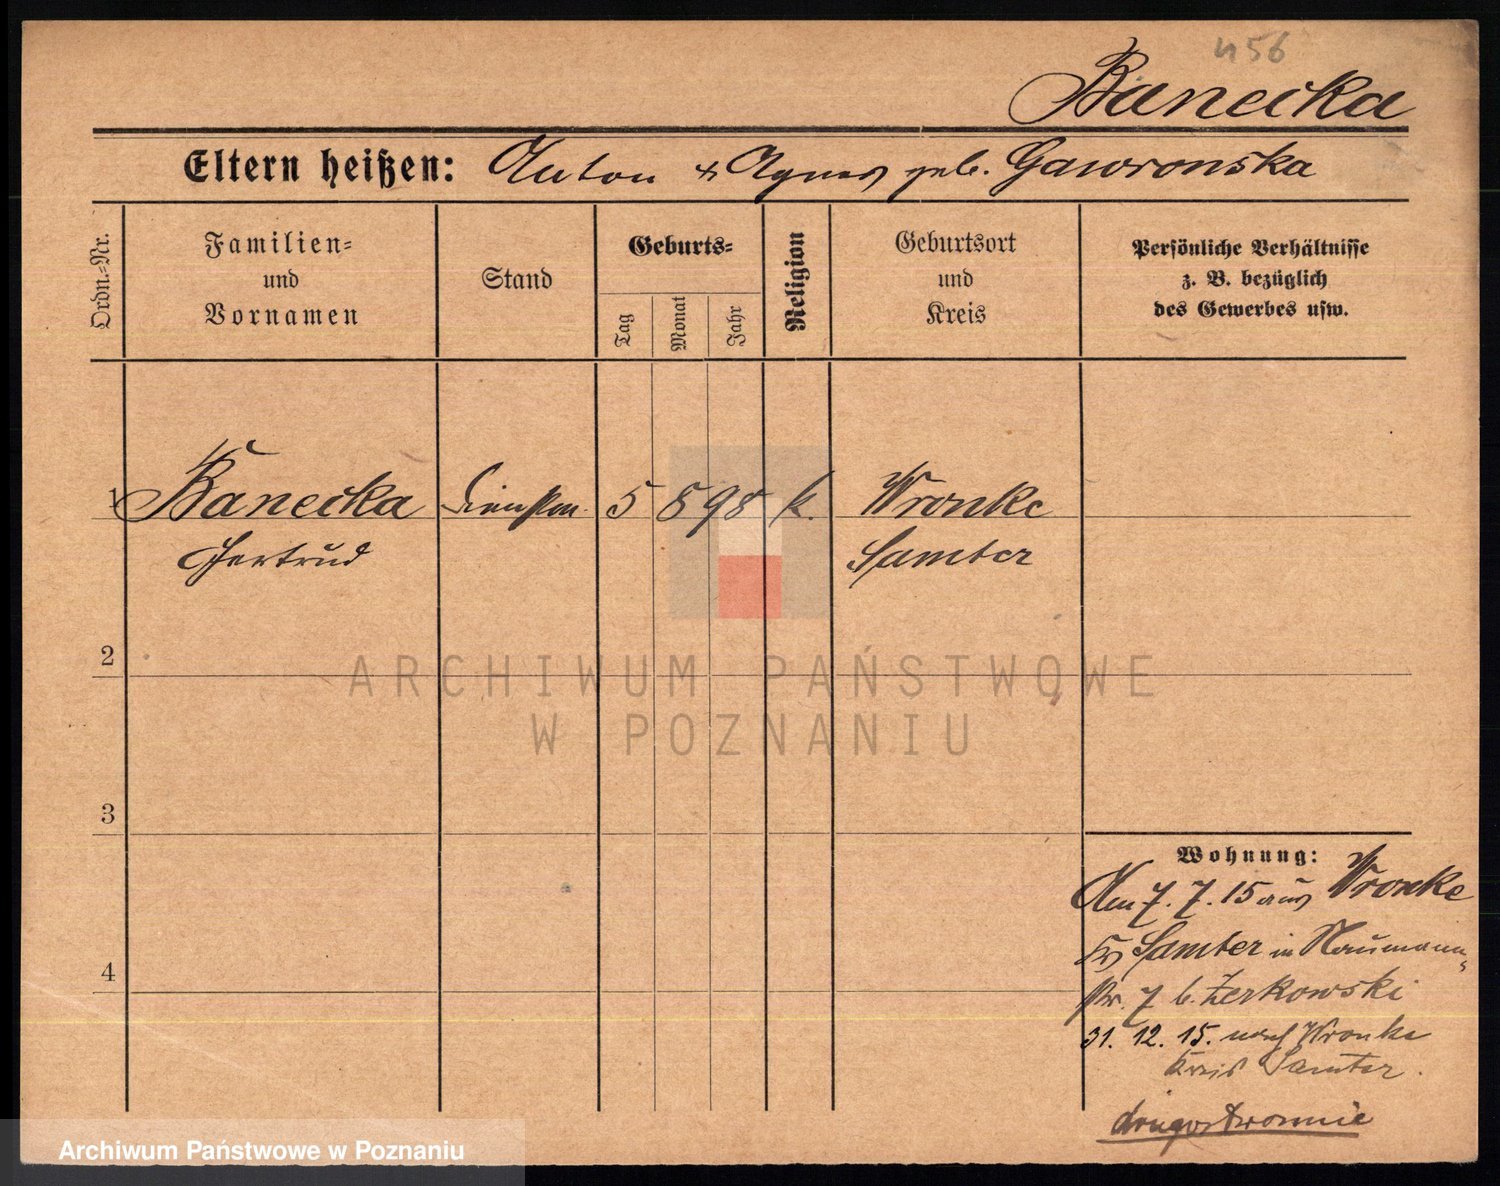 456
Banecka
Eltern heißen: Anton & Agnes geb. Gawronska
Ordn.=Nr.
Familien=
und
Vornamen
Stand
Geburts=
Tag
Monat
Jahr
Religion
Geburtsort
und
Kreis
Persönliche Verhältnisse
z. B. bezüglich
des Gewerbes usw.
1 Banecka 5 8 98 k. Wronke
Gertrud Samter
2
ARCHIWUM PAŃSTWOWE
W POZNANIU
3
4
Wohnung:
Am 7. 7. 15 aus Wronke
Kr Samter in Naumann-
str. 7 b. Żerkowski
31. 12. 15. nach Wronke
Kreis Samter.
drugostronnie
Archiwum Państwowe w Poznaniu